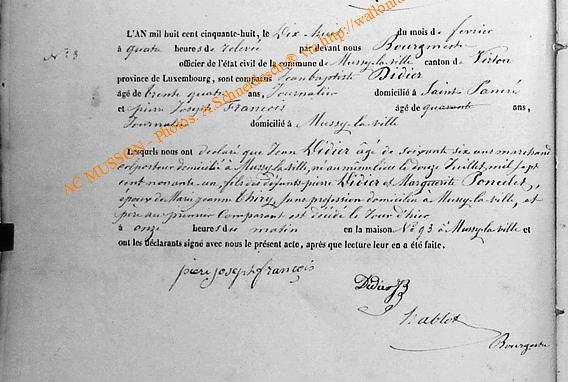 N° 3
L'AN mil huit cent cinquante-huit, le Dix Neuf du mois de fevrier
à quatre heures de relevée par devant nous Bourgmestre
officier de l'état civil de la commune de Mussy-la-ville canton de Virton
province de Luxembourg, sont comparus Jeanbaptiste Didier
âgé de trente quatre ans, Journalier domicilié à Saint Pancré
et pierre Joseph François âgé de quarante ans,
Journalier domicilié à Mussy-la-ville
Lesquels nous ont déclaré que Jean Didier âgé de soixante six ans marchand
colporteur domicilié à Mussy-la-ville, né au même lieu le douze Juillet, mil sept
cent nonante-un, fils des défunts pierre Didier et Marguerite Poncelet,
époux de Marie jeanne Thiry, sans profession domiciliée a Mussy-la-ville, et
pere au premier Comparant est décédé le Jour d'hier
à onze heures du matin en la maison N° 93 à Mussy-la-ville et
ont les déclarants signé avec nous le présent acte, après que lecture leur en a été faite.
piere joseph françois
Didier JB
Bourgmestre
AC MUSSON - Photos- A.Schneidesch ® via http://wallonia